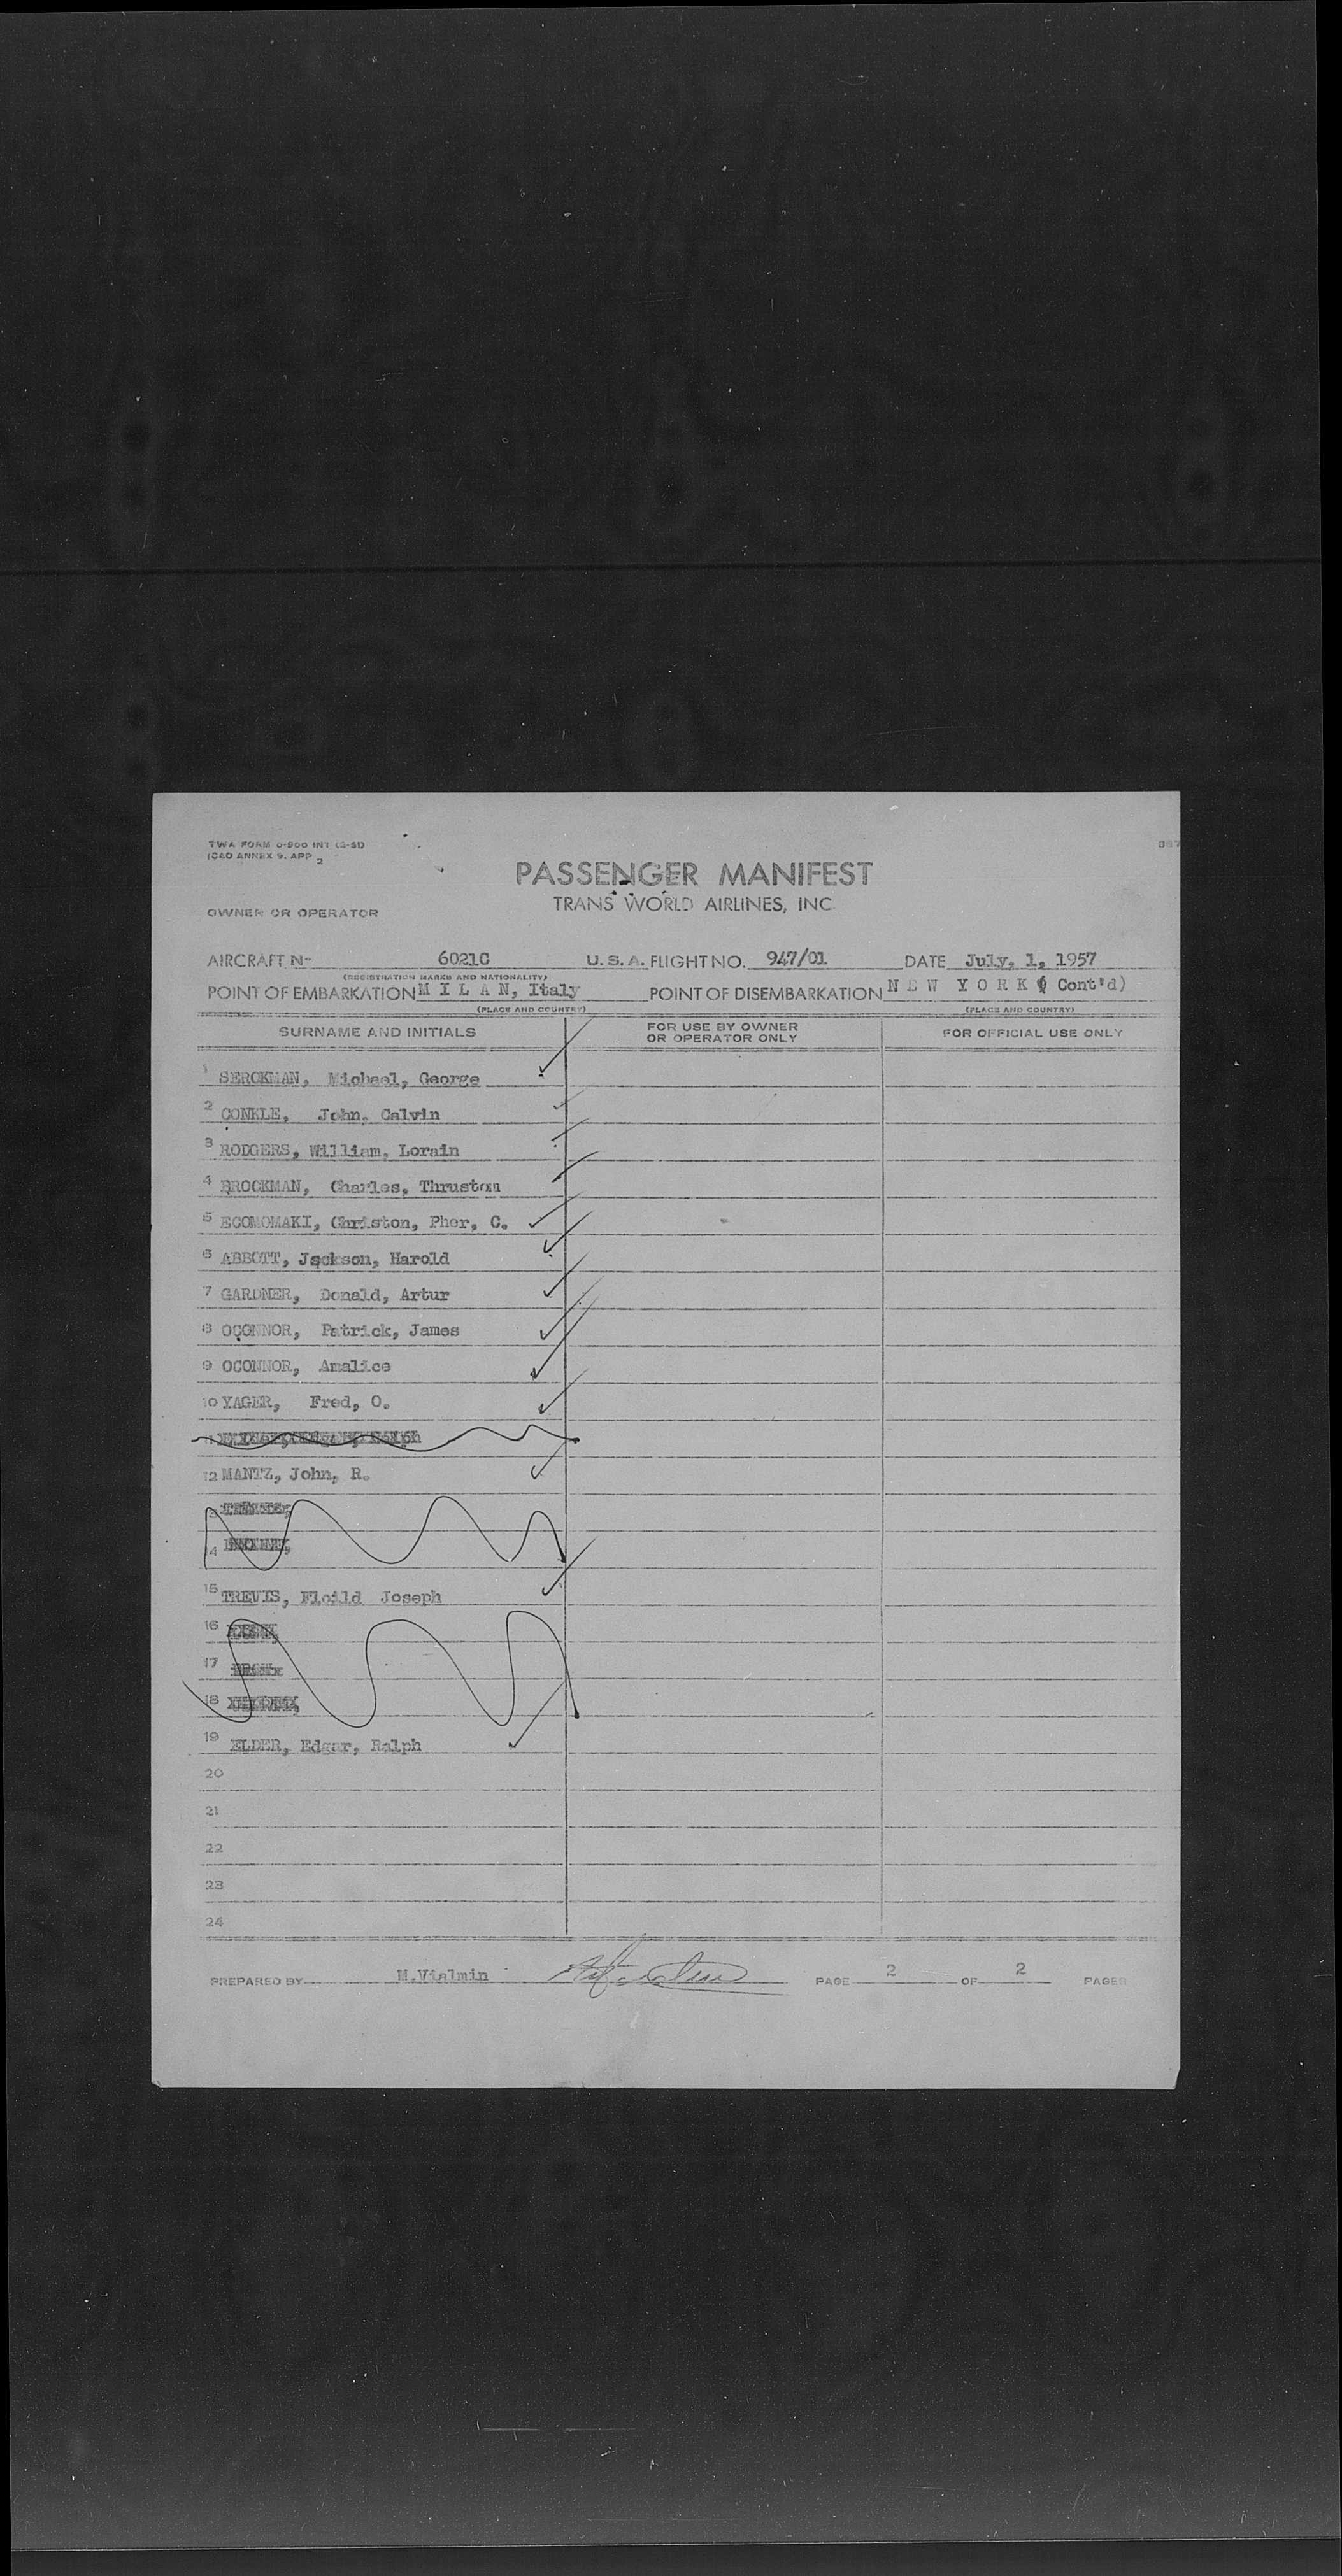 TWA FORM O-900 INT (2-51)
ICAO ANNEX 9. APP 2
PASSENGER MANIFEST
TRANS WORLD AIRLINES, INC
OWNER OR OPERATOR
AIRCRAFT No 6021C U.S.A. FLIGHT NO. 947/01 DATE July, 1, 1957
(REGISTRATION MARKS AND NATIONALITY)
POINT OF EMBARKATION M I L A N, Italy POINT OF DISEMBARKATION N E W Y O R K ( Cont'd)
(PLACE AND COUNTRY) (PLACE AND COUNTRY)
SURNAME AND INITIALS FOR USE BY OWNER OR OPERATOR ONLY FOR OFFICIAL USE ONLY
1 SEROKMAN, Michael, George
2 CONKLE, John, Calvin
3 RODGERS, William, Lorain
4 BROCKMAN, Charles, Thruston
5 ECOMOMAKI, Christon, Pher, C.
6 ABBOTT, Jackson, Harold
7 GARDNER, Donald, Artur
8 OCONNOR, Patrick, James
9 OCONNOR, Analice
10 YAGER, Fred, O.
11 Ralph
12 MANTZ, John, R.
13
14
15 TREVIS, Floild Joseph
16
17
18
19 ELDER, Edgar, Ralph
20
21
22
23
24
PREPARED BY M.Vialmin PAGE 2 OF 2 PAGES